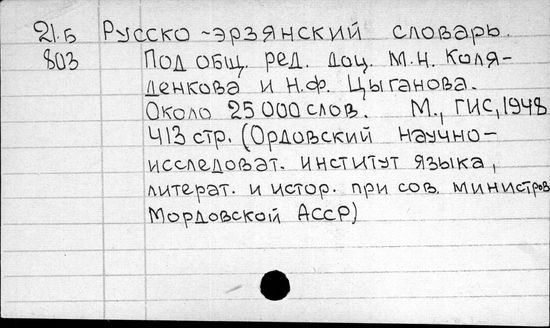 21.Б Русско-эрзянский словарь.
803 Под общ. ред. доц. М.Н. Коля-
денкова и Н.Ф. Цыганова.
Около 25 000 слов. М., ГИС, 1948
413 стр. (Ордовский научно-
исследоват. институт языка,
литерат. и истор. при сов. министров
Мордовской АССР)